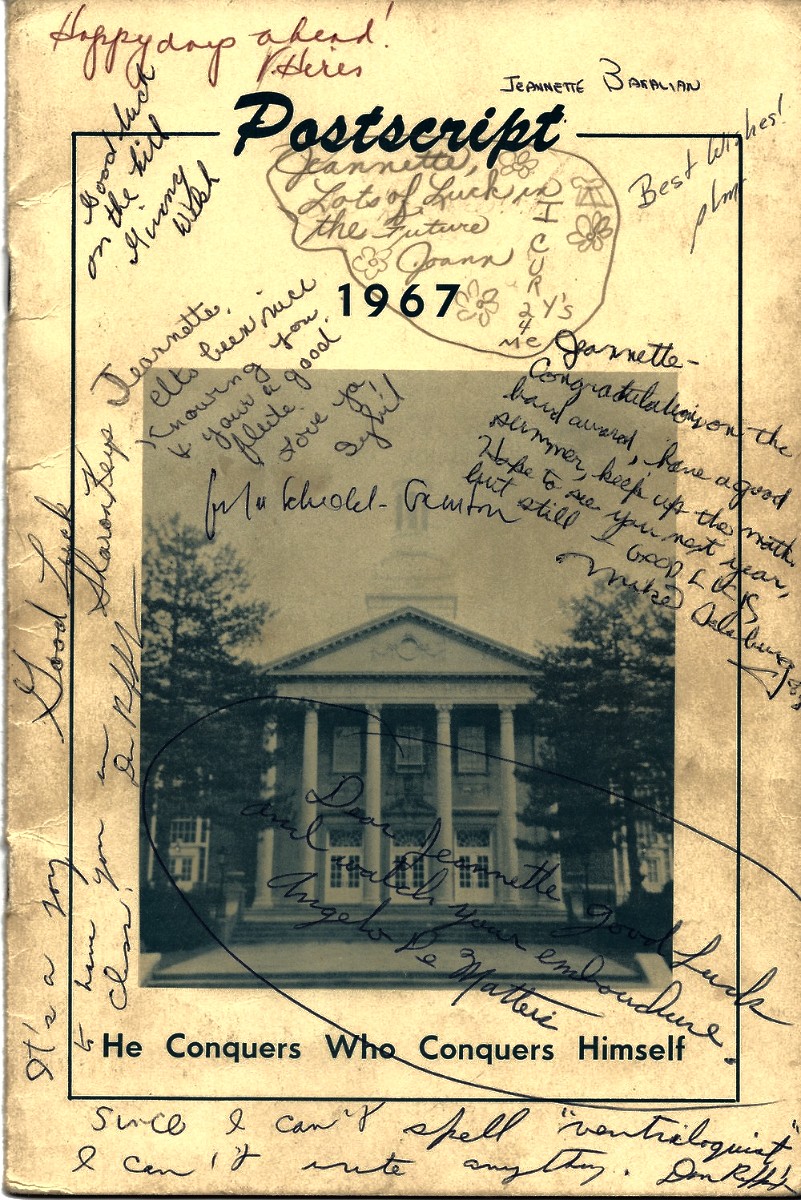 Happy days ahead!
V. Heres
JEANNETTE BAKALIAN
Postscript
Good luck
on the hill
Ginny
Welsh
Best Wishes!
Jeannette,
Lots of Luck in
the Future
Joann
I
C
U
R
2
4
Me
Y's
1967
Jeannette,
It's been nice
Knowing you,
& your a good
flute.
Love ya,
Sybil
Jeannette-
Congratulations on the
band award, have a good
summer, keep up the math.
Hope to see you next year,
but still - GOOD LUCK
Mike
Good Luck
Sharon Keys
It's a joy
to have you in
class.
Dear Jeannette good Luck
and watch your embouchure.
Angelo De Matteis
He Conquers Who Conquers Himself
Since I can't spell "ventriloquist"
I can't write anything. Don